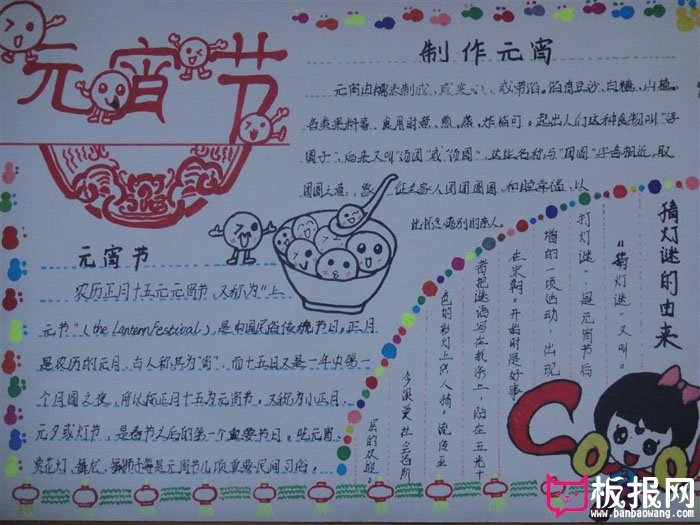 元宵节
制作元宵
元宵由糯米制成，或实心，或带馅。馅有豆沙、白糖、山楂、
各类果料等，食用时煮、煎、蒸、炸皆可。起初，人们这种食物叫“浮
圆子”，后来又叫“汤团”或“汤圆”，这些名称与“团圆”字音相近，取
团圆之意，象征全家人团团圆圆，和睦幸福，以
出怀念离别的亲人。
元宵节
农历正月十五元宵节，又称为“上
元节”（the Lantern Festival），是中国民俗传统节日。正月
是农历的元月，古人称其为“宵”，而十五日又是一年中第一
个月圆之夜，所以称正月十五为元宵节。又称为小正月、
元夕或灯节，是春节之后的第一个重要节日。吃元宵、
赏花灯、舞龙、舞狮子等是元宵节几项重要民间习俗。
猜灯谜的由来
“猜灯谜”又叫“
打灯谜”是元宵节后
增的一项活动，出现
在宋朝。开始时是好事
者把谜语写在纸条上，贴在五光十
色的彩灯上供人猜。
会各阶
层的欢迎。
板报网
www.banbaowang.com